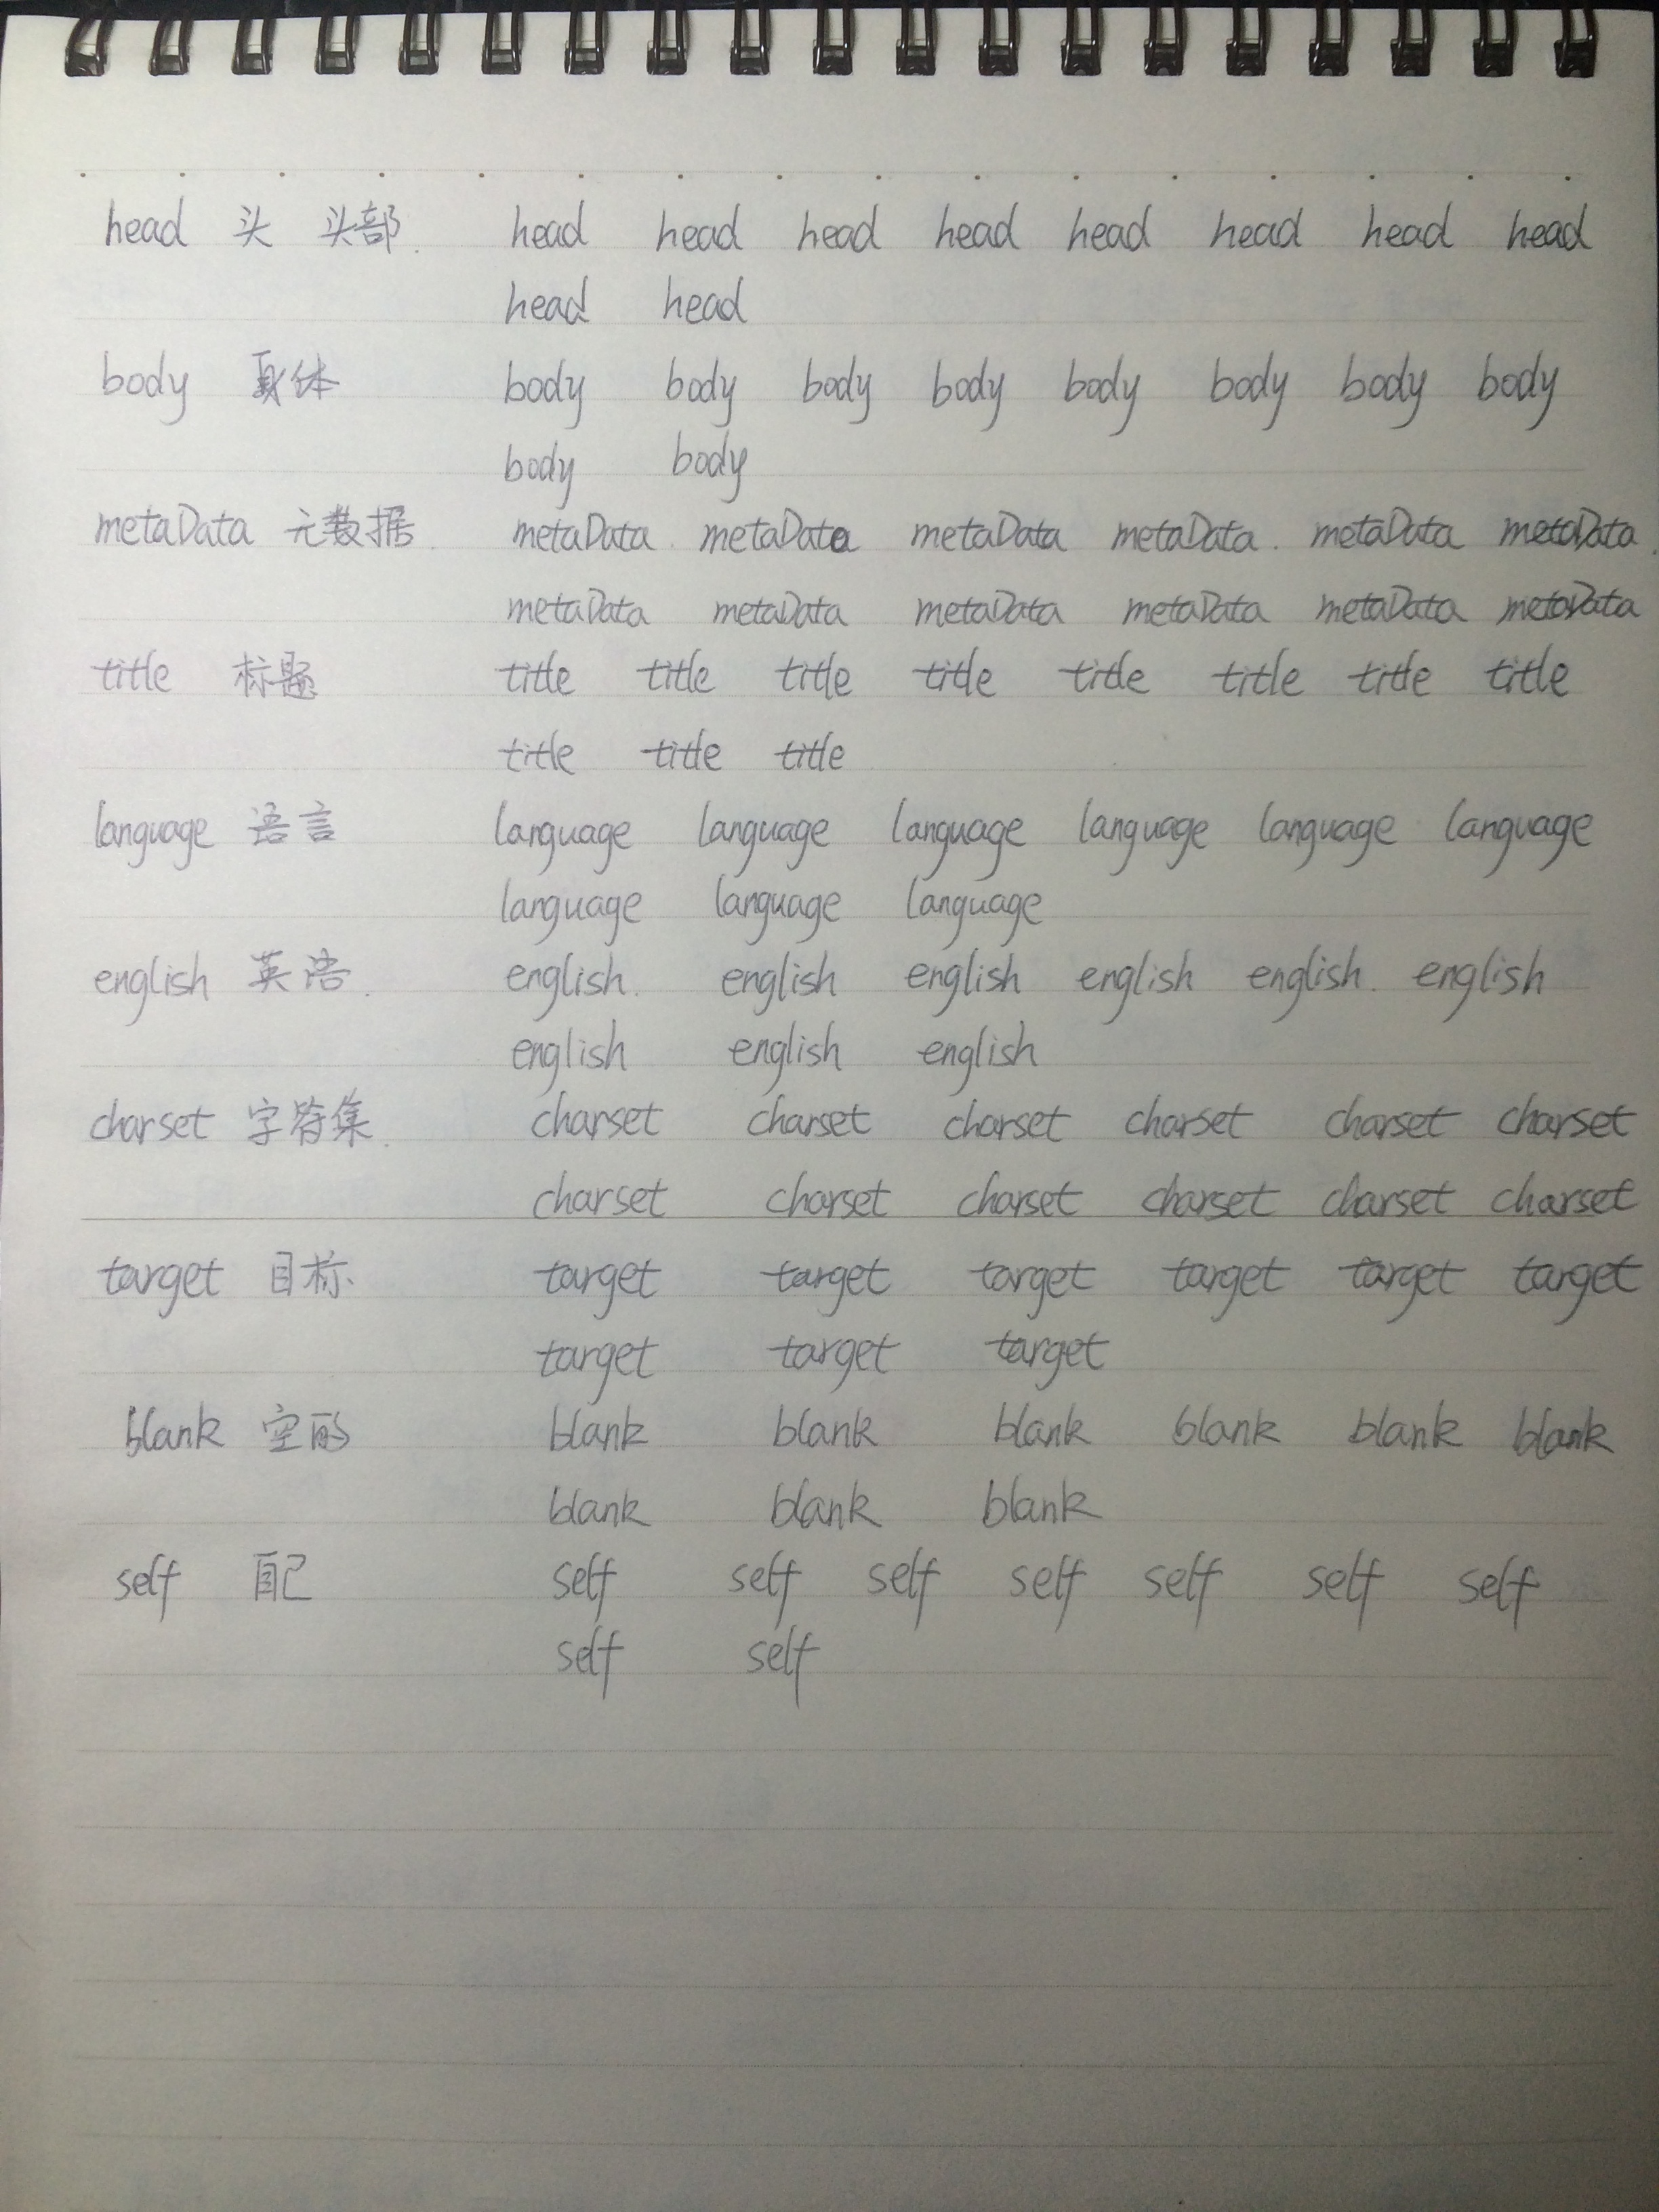 head 头 头部. head head head head head head head head
head head
body 身体 body body body body body body body body
body body
metaData 元数据. metaData. metaData metaData metaData. metaData metaData.
metaData metaData metaData metaData metaData metaData
title 标题 title title title title title title title title
title title title
language 语言 language language language language language language
language language language
english 英语. english. english english english english. english
english english english
charset 字符集. charset charset charset charset charset charset
charset charset charset charset charset charset
target 目标 target target target target target target
target target target
blank 空的 blank blank blank blank blank blank
blank blank blank
self 自己 self self self self self self self
self self